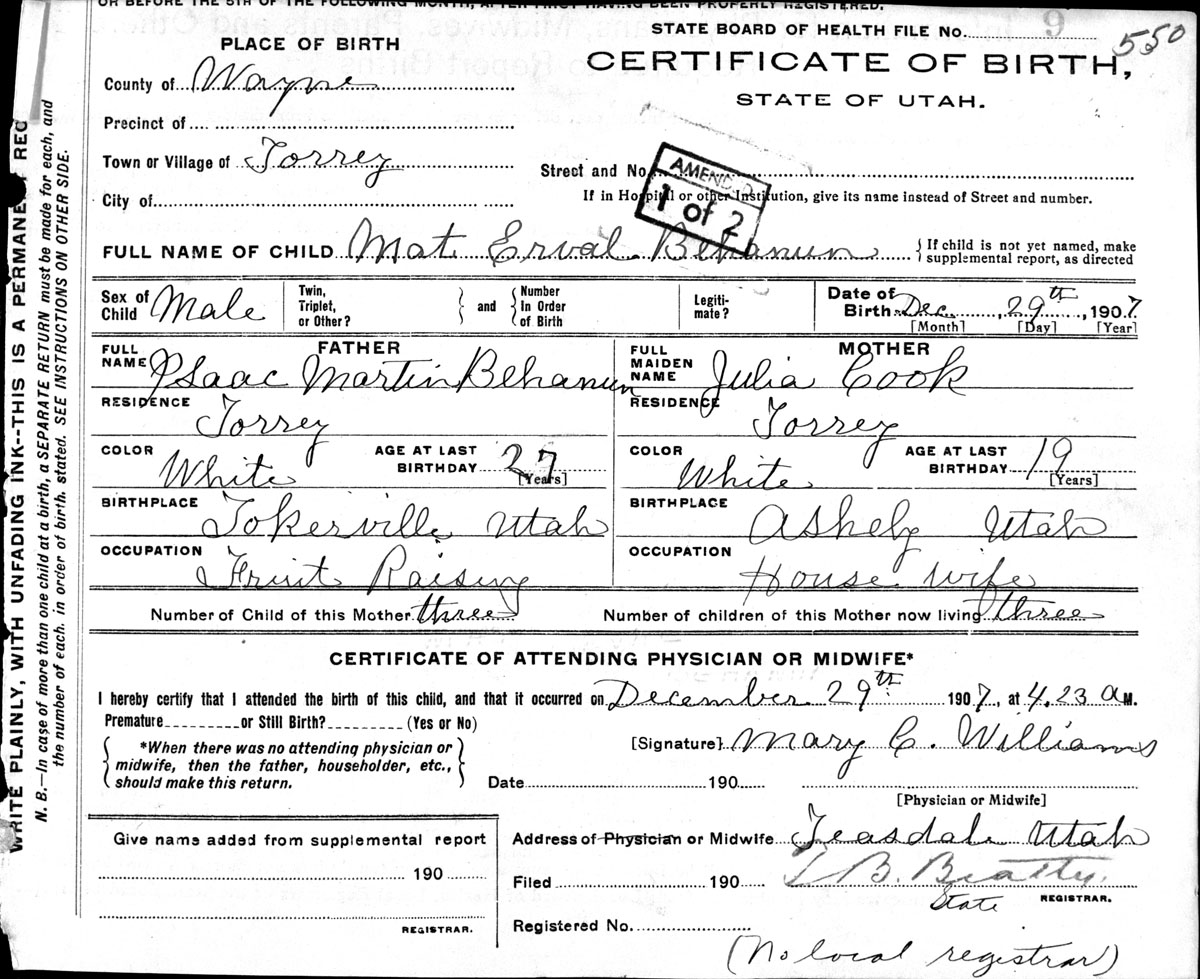 OR BEFORE THE 5TH OF THE FOLLOWING MONTH, AFTER FIRST HAVING BEEN PROPERLY REGISTERED.
STATE BOARD OF HEALTH FILE No. 9
550
PLACE OF BIRTH
CERTIFICATE OF BIRTH,
STATE OF UTAH.
County of Wayne
Precinct of
Town or Village of Torrey
Street and No.
City of
If in Hospital or other Institution, give its name instead of Street and number.
AMENDED
1 of 2
FULL NAME OF CHILD Mat Erval Behanun
{If child is not yet named, make supplemental report, as directed
Sex of Child Male
Twin, Triplet, or Other?
} and {
Number In Order of Birth
Legiti-mate?
Date of Birth Dec. 29th, 1907
[Month] [Day] [Year]
FATHER
FULL NAME Isaac Martin Behanun
RESIDENCE Torrey
COLOR White
AGE AT LAST BIRTHDAY 27 [Years]
BIRTHPLACE Tokerville Utah
OCCUPATION Fruit Raising
MOTHER
FULL MAIDEN NAME Julia Cook
RESIDENCE Torrey
COLOR White
AGE AT LAST BIRTHDAY 19 [Years]
BIRTHPLACE Ashely Utah
OCCUPATION House wife
Number of Child of this Mother three
Number of children of this Mother now living three
CERTIFICATE OF ATTENDING PHYSICIAN OR MIDWIFE*
I hereby certify that I attended the birth of this child, and that it occurred on December 29th 1907, at 4.23 A M.
Premature or Still Birth? (Yes or No)
{ *When there was no attending physician or
midwife, then the father, householder, etc.,
should make this return. }
[Signature] Mary C. Williams
Date 190
[Physician or Midwife]
Give name added from supplemental report
190
REGISTRAR.
Address of Physician or Midwife Teasdale Utah
Filed 190 B. Beatty.
State REGISTRAR.
Registered No.
(No local registrar)
WRITE PLAINLY, WITH UNFADING INK--THIS IS A PERMANENT REC
N. B.—In case of more than one child at a birth, a SEPARATE RETURN must be made for each, and
the number of each, in order of birth, stated. SEE INSTRUCTIONS ON OTHER SIDE.